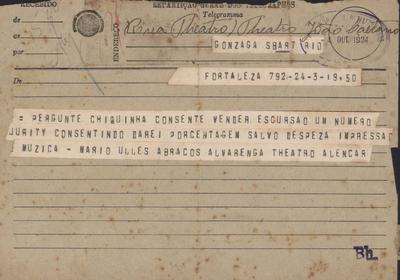 RECEBIDO REPARTIÇÃO GERAL DOS TELEGRAPHOS
Telegramma
de
as
por
ENDEREÇO
(Rua Theatro) Theatro João Caetano
GONZAGA SBART RIO
OUT. 1924
FORTALEZA 792-24-3-19,50
= PERGUNTE CHIQUINHA CONSENTE VENDER ESCURSAO UM NUMERO
JURITY CONSENTINDO DAREI PORCENTAGEM SALVO DESPEZA IMPRESSAO
MUZICA - MARIO ULLES ABRACOS ALVARENGA THEATRO ALENCAR
Bh